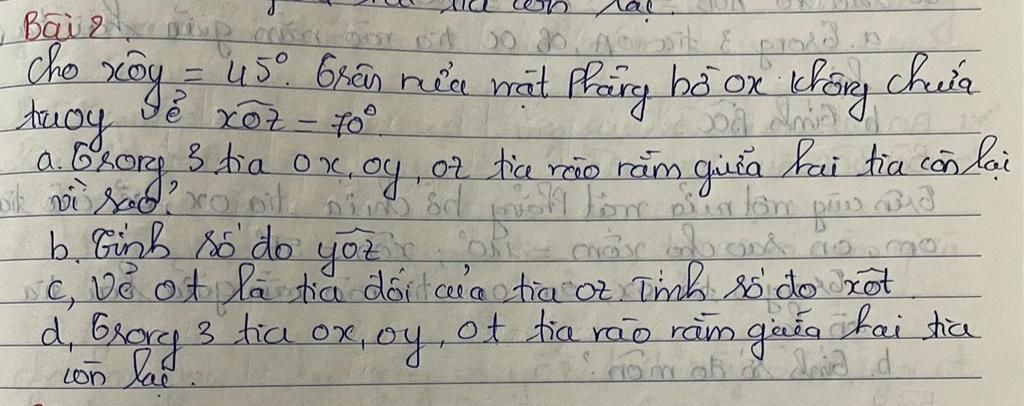 Bài 2.
Cho xôy = 45°. Trên nửa mặt phẳng bờ ox không chứa
tia oy vẽ xoz = 70°
a. Trong 3 tia ox, oy, oz tia nào nằm giữa hai tia còn lại
vì sao?
b. Tính số đo yoz
c, Vẽ ot là tia đối của tia oz. Tính số đo xot
d, Trong 3 tia ox, oy, ot tia nào nằm giữa hai tia
còn lại.